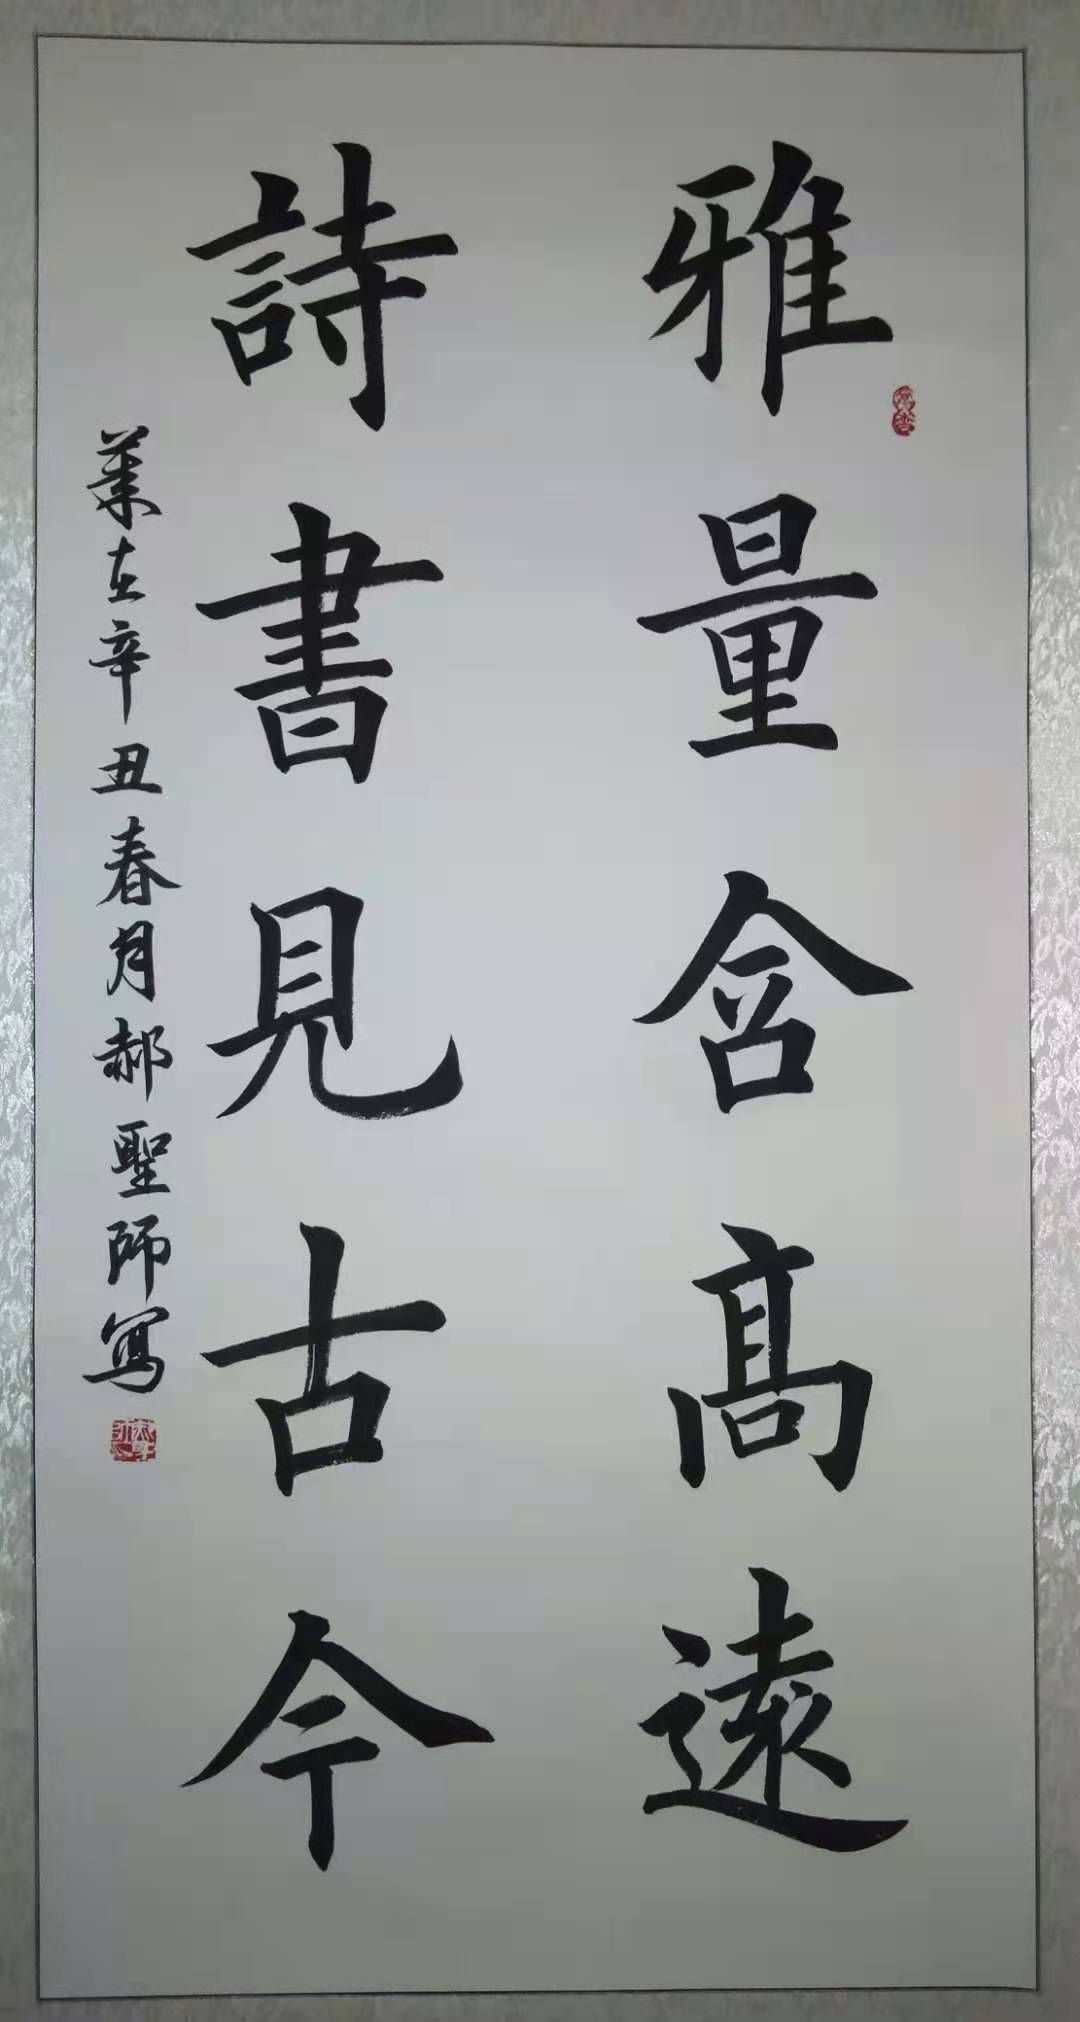 雅量含高遠
詩書見古今
業在辛丑春月郝聖師寫